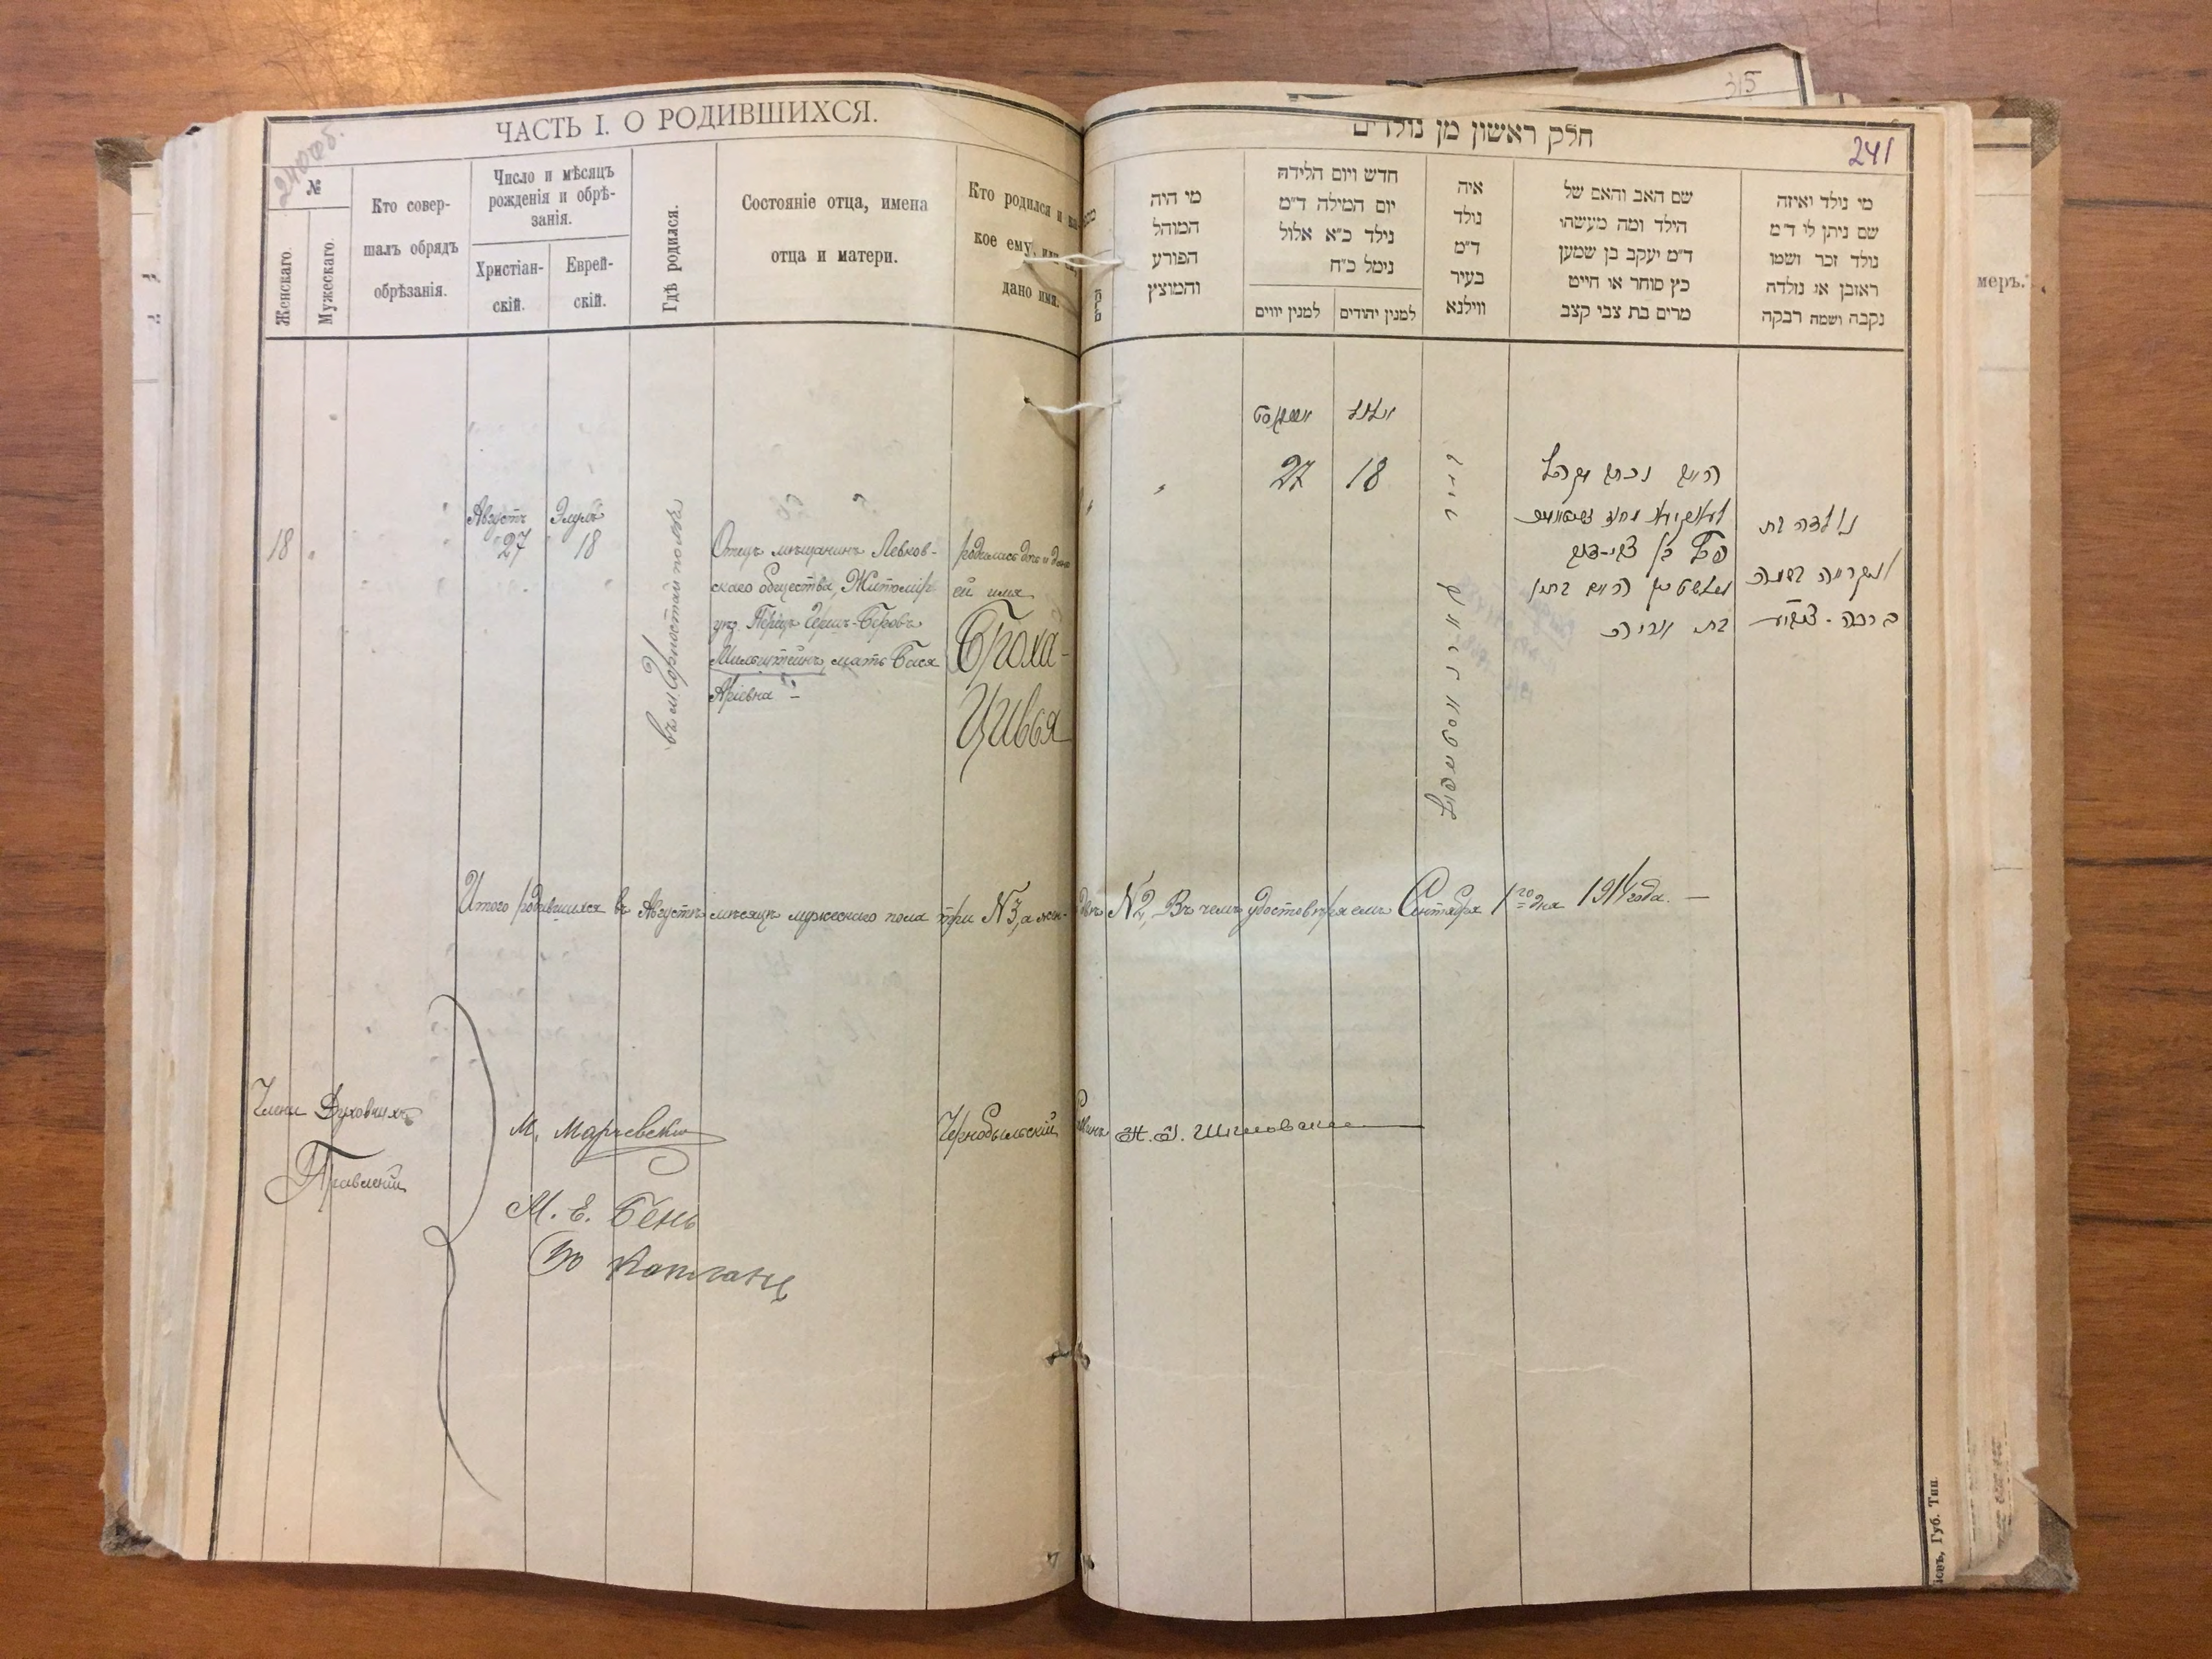 240 об.
ЧАСТЬ I. О РОДИВШИХСЯ.
№
Женскаго.
Мужескаго.
Кто совер-
шалъ обрядъ
обрѣзанія.
Число и мѣсяцъ
рожденія и обрѣ-
занія.
Христіан-
скій.
Еврей-
скій.
Гдѣ родился.
Состояніе отца, имена
отца и матери.
Кто родился и
кое ему, или
дано имя.
18
Августъ
27
Элулъ
18
въ м. Горностайполѣ
Отецъ мѣщанинъ Левков-
скаго общества, Житомір
уѣз. Перецъ Герш-Беровъ
Мильштейнъ, мать Бася
Аріевна
родилась дочь и дано
ей имя
Броха-
Цивья
חלק ראשון מן נולדים
241
315
מי היה
המוהל
הפורע
והמוצץ
חדש ויום הלידה
יום המילה ד״מ
נילד כ״א אלול
נימל כ״ח
למנין יווים
למנין יהודים
איה
נולד
ד״מ
בעיר
ווילנא
שם האב והאם של
הילד ומה מעשהו
ד״מ יעקב בן שמעון
כץ סוחר או חייט
מרים בת צבי קצב
מי נולד ואיזה
שם ניתן לו ד״מ
נולד זכר ושמו
ראובן או נולדה
נקבה ושמה רבקה
אויגוסט
אלול
27
18
נולדה בת
ונקראה בשמה
ברכה - צביע
меръ.
Итого родившихся въ Августѣ мѣсяцѣ мужескаго пола три №3, а жен- двѣ №2, Въ чемъ удостовѣряемъ Сентября 1го дня 1911 года. —
Члены Духовныхъ
Правленій
М. Марчевскій
М. Е. Бень
Ю Каплань
Чернобыльскій
іевъ, Губ. Тип